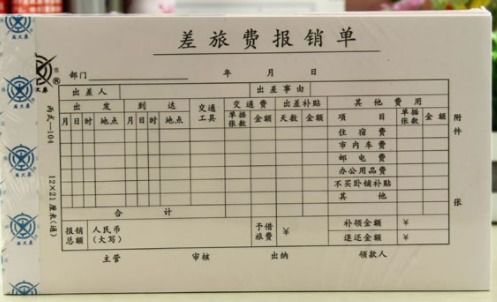 差旅费报销单
部门 年 月 日
出差人 出差事由
出发 到达 交通工具 交通费 出差补贴 其他费用
月 日 时 地点 月 日 时 地点 单据张数 金额 天数 金额 项目 单据张数 金额
住宿费
市内车费
邮电费
办公用品费
不买卧铺补贴
其他
合计
报销总额 人民币(大写) 予借旅费 ¥ 补领金额
退还金额
主管 审核 出纳 领款人
附件 张
丙式-104 12×21厘米(通)